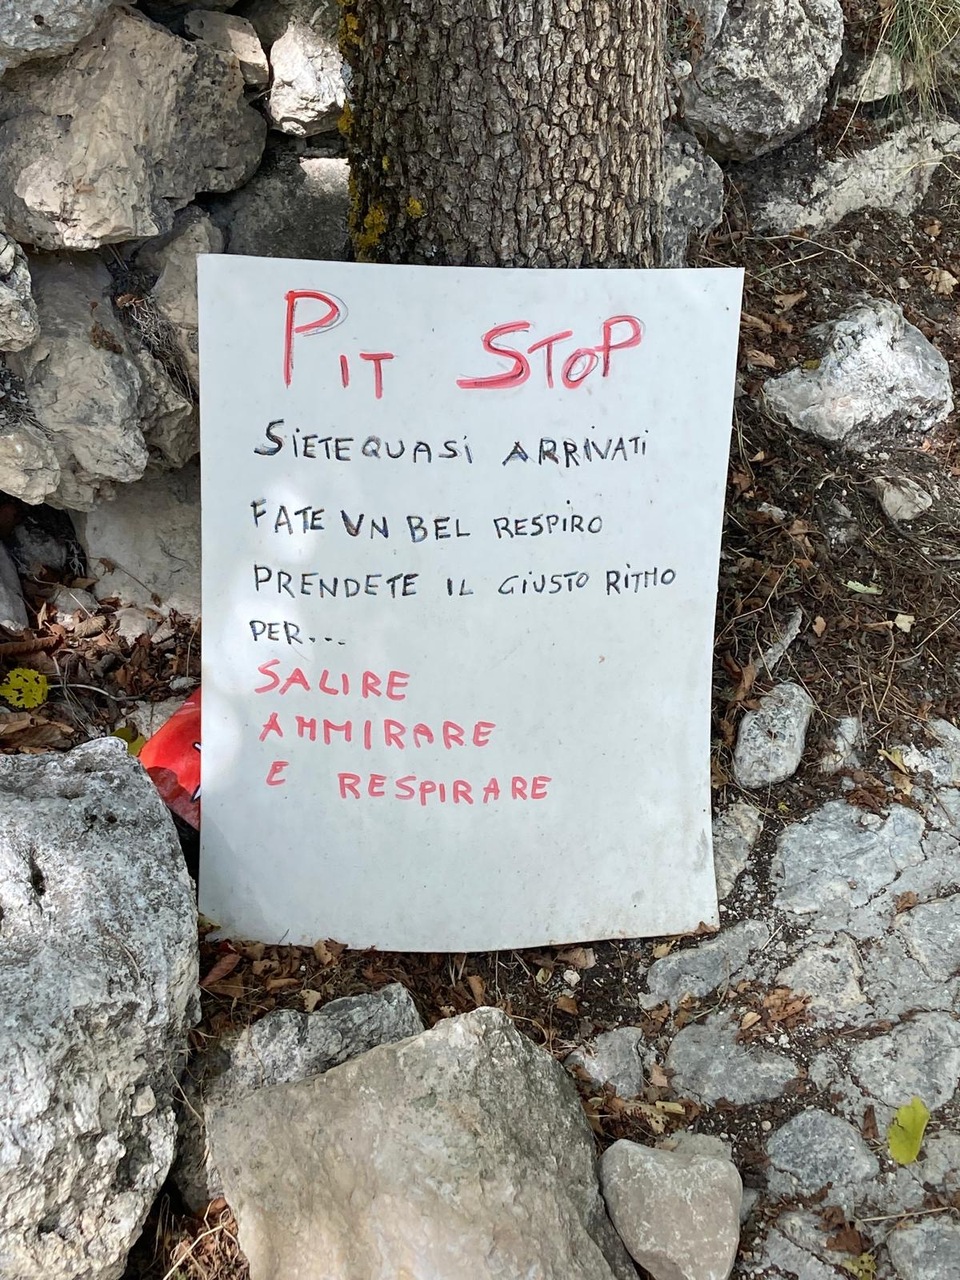 PIT STOP
SIETE QUASI ARRIVATI
FATE UN BEL RESPIRO
PRENDETE IL GIUSTO RITMO
PER...
SALIRE
AMMIRARE
E RESPIRARE